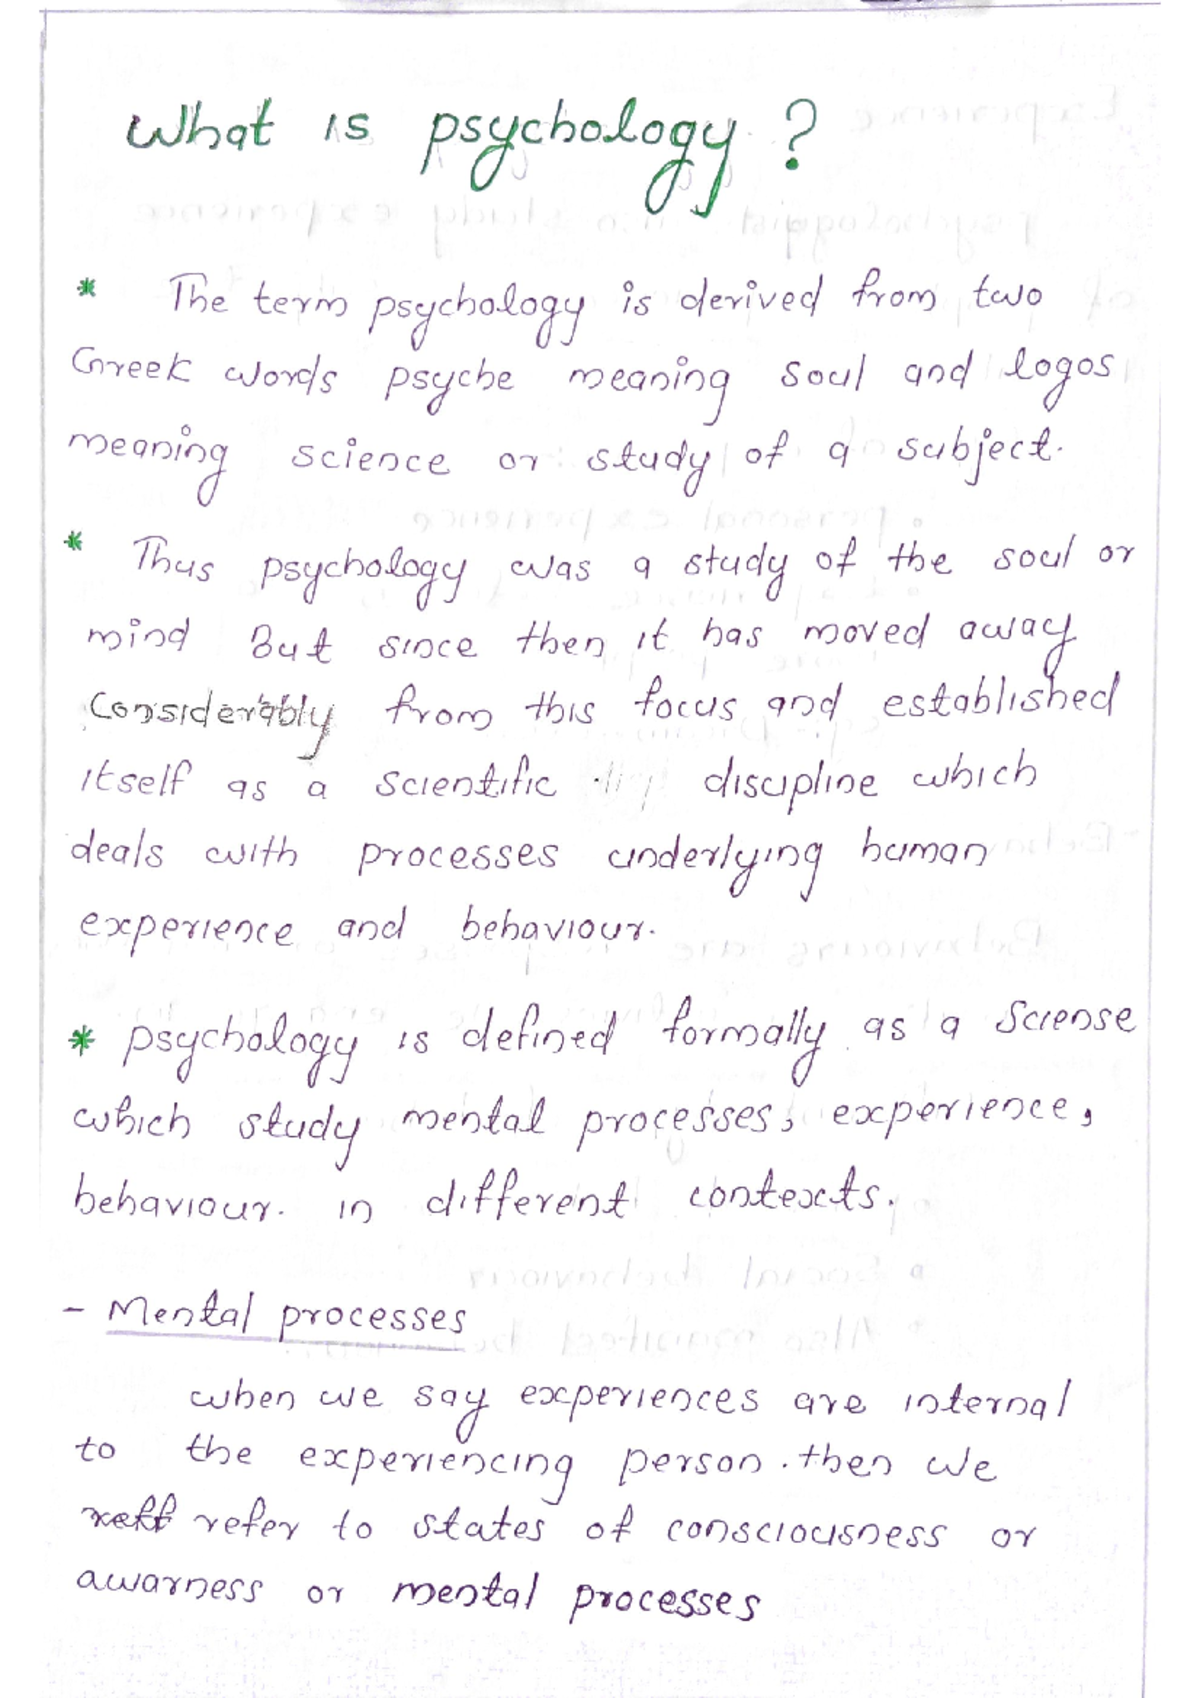 What is psychology ?
* The term psychology is derived from two
Greek words psyche meaning soul and logos
meaning science or study of a subject.
* Thus psychology was a study of the soul or
mind But since then it has moved away
Considerably from this focus and established
itself as a scientific discipline which
deals with processes underlying human
experience and behaviour.
* psychology is defined formally as a Sciense
which study mental processes, experience,
behaviour. in different contexts.
- Mental processes
when we say experiences are internal
to the experiencing person. then we
refer to states of consciousness or
awarness or mental processes